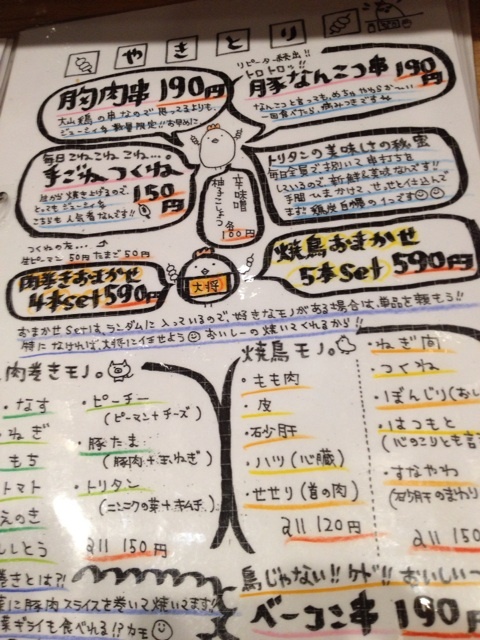 やきとり
胸肉串 190円
大山鶏の串なので思ってるよりも、
ジューシィ☆数量限定!!お早めに
リピーター続出!!
トロトロッ!!
豚なんこつ串 190円
なんこつと言っても、めちゃやわらか〜い
一回食べたら、病みつきです
毎日こねこねこね…。
手ごねつくね
150円
とってもジューシィ
こちらも人気者なんです!!
辛味噌
柚子こしょう
各100円
トリタンの美味しさの秘密
毎日全品手捌いて串打ちを
しているので新鮮&美味なんです!!
手間ひまかけて、せっせと仕込んで
ます。鶏皮自慢の1こです
つくねの友…
生ピーマン 50円 たまご 50円
肉巻きおまかせ
4本set 590円
大将
焼鳥おまかせ
5本set 590円
おまかせsetは、ランダムに入っているので、好きなモノがある場合は、単品を頼もう!!
特になければ大将にイ任せよう おいしーの焼いてくれるから!!
肉巻きモノ。
・なす
・ねぎ
・もち
トマト
えのき
ししとう
・ピーチー
(ピーマン+チーズ)
・豚たま
(豚肉+玉ねぎ)
・トリタン
(ニンニクの芽+キムチ)
all 150円
焼鳥モノ。
・もも肉
・皮
・砂肝
・ハツ(心臓)
・せせり(首の肉)
all 120円
・ねぎ間
・つくね
・ぼんじり(おし
・はつもと
(心のこりとも言
・すなやわ
(砂肝のまわり
all 150
巻きとは?!
に豚肉スライスを巻いて焼いてます!!
菜ギライも食べれる!?カモ
鳥じゃない!!ケド!!おいしい〜
ベーコン串 190円